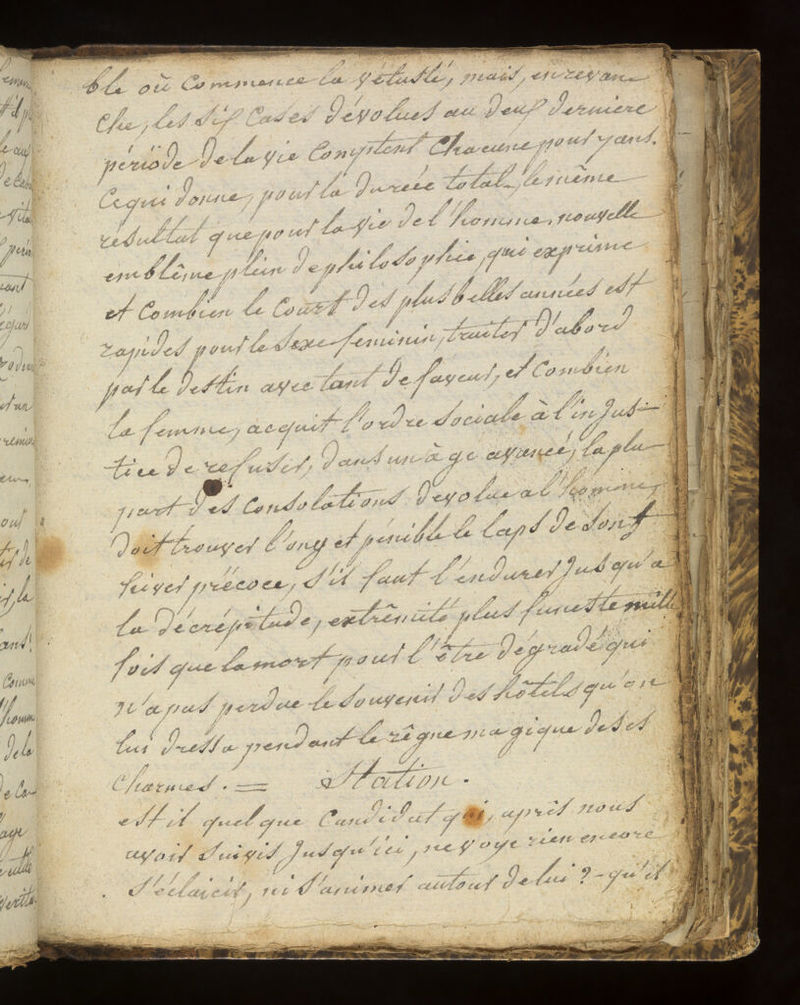 ble où commence la vétusté, mais, en revan-
che, les six cases dévolues au deux derniere
périöde de la vie comptent chacune pour 7 ans.
Ce qui donne, pour la durée total, le même
résultat que pour la vie de l'homme, nouvelle
emblême plein de philosophie, qui exprime
et combien le court des plus belles années est
rapides pour le sexe feminin, traiter d'abord
par le destin avec tant de faveur, et combien
la femme, acquit l'ordre sociale à l'injus-
tice de refuser, dans un âge avancée, la plu-
part des consolations dévolue a l'homme,
doit trouver l'ong et pénible le laps de son
hiver précoce, s'il faut l'endurer jusqu'a
la décrépitude, extrêmité plus funeste mille
fois que la mort pour l'être dégradé qui
n'a pas perdue le souvenir des hôtels qu'on
lui dressa pendant le rêgne magique de ses
charmes. = Station.
est il quelque candidat qui, après nous
avoir suivis jusqu'ici, ne voye rien encore
s'éclaicir, ni s'animer autour de lui ? - qu'il